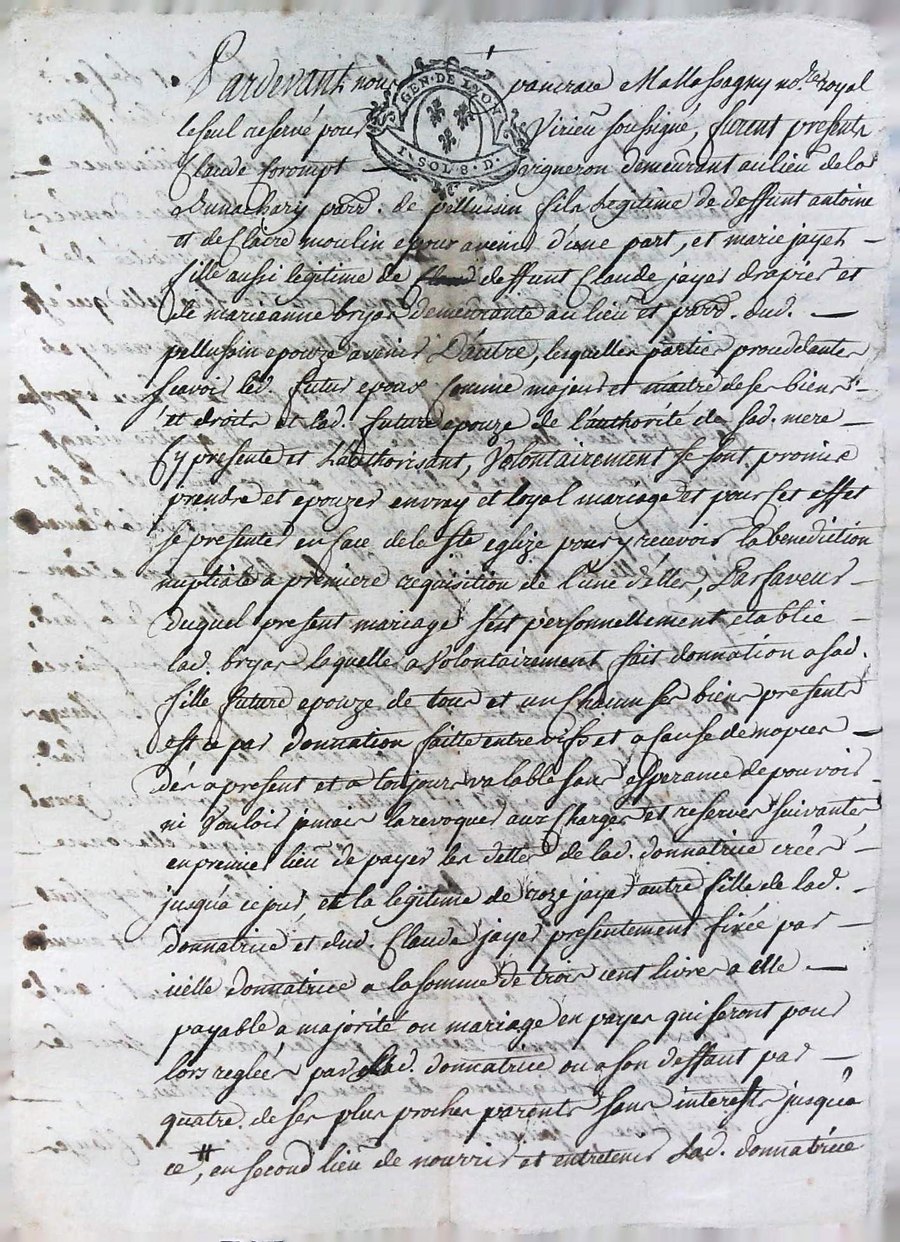 Pardevant nous pancrace Mallossagny no.re royal
le seul reservé pour Virieu soussigné, furent presents
GEN. DE LYON
1. SOL 8. D.
Claude Corompt vigneron demeurant au lieu de la
parr. de pellussin fils legitime de deffunt antoine
et de Claire moulin epoux avenir d'une part, et marie jayet —
fille aussi legitime de deffunt Claude jayet drapier et
de marieanne bryas demeurante au lieu et parr. dud. —
pellussin epouze avenir D'autre, lesquelles parties procedantes
scavoir led. futur epoux comme majeur et maitre de ses biens
et droits et lad. future epouze de l'authorité de sad. mere —
Cy presente et L'authorisant, Volontairement se sont promis
prendre et epouzer en vray et loyal mariage et pour cet effet
se presenter en face de la Ste eglize pour y recevoir la benediction
nuptiale a premiere requisition de l'une d'elles, En faveur —
duquel present mariage s'est personnellement etablie —
lad. bryas laquelle a Volontairement fait donnation a sad.
fille future epouze de tous et un Chacun ses biens presents
et ce par donnation faitte entre vifs et a Cause de noces —
dés a present et a toujours valable sans esperance de pouvoir —
ni Vouloir jamais la revoquer aux Charges et reserves suivantes
en premier lieu de payer les dettes de lad. donnatrice créés —
jusqu'a ce jour, et la legitime de roze jayet autre fille de lad. —
donnatrice et dud. Claude jayet presentement fixée par —
icelle donnatrice a la somme de trois cent livres a elle —
payable a majorité ou mariage en payes qui seront pour
lors reglées par lad. donnatrice ou a son deffaut par —
quatre de ses plus proches parents sans interests jusqu'a
ce #, en second lieu de nourrir et entretenir Lad. donnatrice